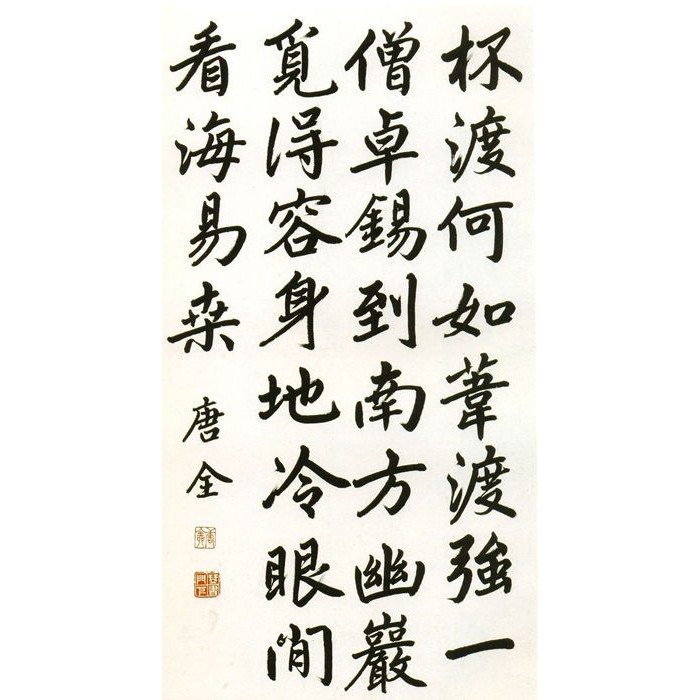 杯渡何如葦渡強一
僧卓錫到南方幽巖
覓得容身地冷眼閒
看海易桒
唐全